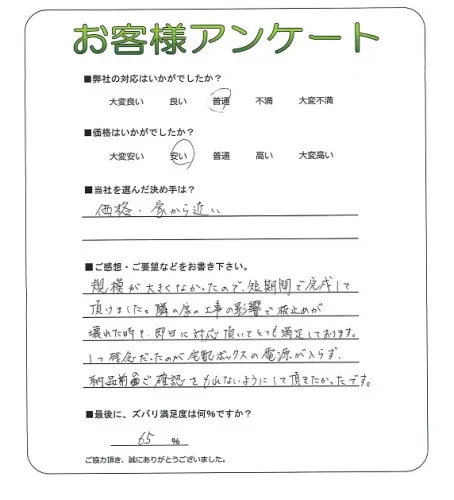 お客様アンケート
■弊社の対応はいかがでしたか?
大変良い 良い 普通 不満 大変不満
■価格はいかがでしたか?
大変安い 安い 普通 高い 大変高い
■当社を選んだ決め手は?
価格・家から近い
■ご感想・ご要望などをお書き下さい。
規模が大きくなかったので、短期間で完成して
頂けました。隣の家の工事の影響で板止めが
壊れた時も、即日に対応頂いてとても満足しております。
1つ残念だったのが宅配ボックスの電源が入らず、
納品前のご確認をもれないようにして頂きたかったです。
■最後に、ズバリ満足度は何%ですか?
65 %
ご協力頂き、誠にありがとうございました。